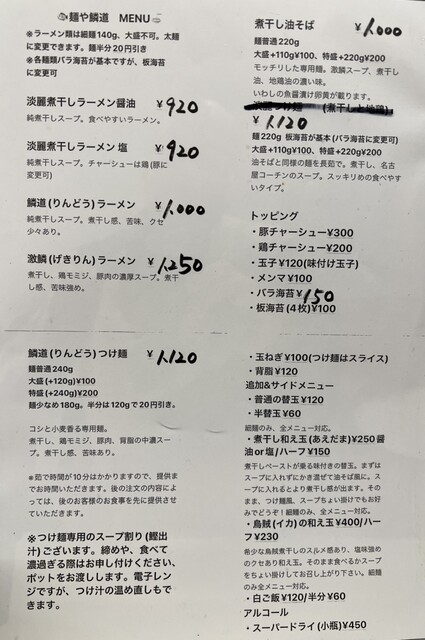 麺や鱗道　MENU
※ラーメン類は細麺140g、大盛不可。太麺
に変更できます。麺半分20円引き
※各種類バラ海苔が基本ですが、板海苔
に変更可
淡麗煮干しラーメン醤油 ¥920
純煮干しスープ。食べやすいラーメン。
淡麗煮干しラーメン 塩 ¥920
純煮干しスープ。チャーシューは鶏(豚に
変更可)
鱗道(りんどう)ラーメン ¥1,000
純煮干しスープ。煮干し感、苦味、クセ
少々あり。
激鱗(げきりん)ラーメン ¥1,250
煮干し、鶏モミジ、豚肉の濃厚スープ。煮干
し感、苦味強め。
鱗道(りんどう)つけ麺 ¥1,120
麺普通240g
大盛(+120g)¥100
特盛(+240g)¥200
麺少なめ180g。半分は120gで20円引き。
コシと小麦香る専用麺。
煮干し、鶏モミジ、豚肉、背脂の中濃スー
プ。煮干し感、苦味あり。
※茹で時間が10分はかかりますので、提供ま
でお時間いただきます。後の注文の内容によ
っては、後のお客様のお食事を先に提供させ
ていただきます。
※つけ麺専用のスープ割り(鰹出
汁)ございます。締めや、食べて
濃過ぎる際はお申し付けください、
ポットをお渡しします。電子レン
ジですが、つけ汁の温め直しもで
きます。
煮干し油そば ¥1,000
麺普通220g
大盛+110g¥100、特盛+220g¥200
モッチリした専用麺。激鱗スープ、煮干し
油、地鶏油の濃い味。
いわしの魚醤漬け卵黄が載ります。
淡麗つけ麺　(煮干しと地鶏)
¥1,120
麺220g 板海苔が基本(バラ海苔に変更可)
大盛+110g¥100、特盛+220g¥200
油そばと同様の麺を長茹で。煮干し、名古
屋コーチンのスープ。スッキリめの食べやす
いタイプ。
トッピング
・豚チャーシュー¥300
・鶏チャーシュー¥200
・玉子¥120(味付け玉子)
・メンマ¥100
・バラ海苔¥150
・板海苔(4枚)¥100
・玉ねぎ¥100(つけ麺はスライス)
・背脂¥120
追加&サイドメニュー
・普通の替玉¥120
・半替玉¥60
細麺のみ、全メニュー対応。
・煮干し和え玉(あえだま)¥250醤
油or塩/ハーフ¥150
煮干しペーストが乗る味付きの替玉。まずは
スープに入れずにかき混ぜて油そば風に。ス
ープに入れるとより煮干し感が出ます。その
まま、つけ麺風、スープちょい掛けでもお好
みでどうぞ！細麺のみ、全メニュー対応。
・烏賊(イカ)の和え玉¥400/ハー
フ¥230
希少な烏賊煮干しのスルメ感あり、塩味強め
のクセあり和え玉。そのまま食べるかスープ
をちょい掛けしてお召し上がり下さい。細麺
のみ全メニュー対応。
・白ご飯¥120/半分¥60
アルコール
・スーパードライ(小瓶)¥450